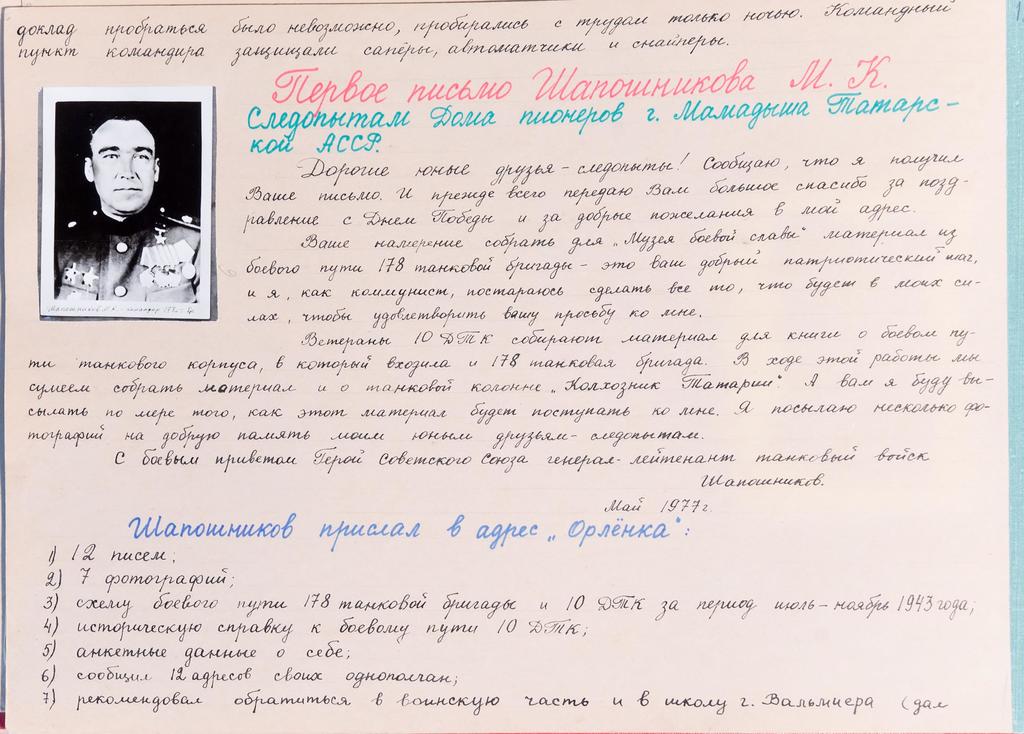 доклад пробраться было невозможно, пробирались с трудом только ночью. Командный
пункт командира защищали сапёры, автоматчики и снайперы.
Первое письмо Шапошникова М. К.
Следопытам Дома пионеров г. Мамадыша Татарс-
кой АССР.
Дорогие юные друзья - следопыты! Сообщаю, что я получил
Ваше письмо. И прежде всего передаю Вам большое спасибо за позд-
равление с Днем Победы и за добрые пожелания в мой адрес.
Ваше намерение собрать для „Музея боевой славы" материал из
боевого пути 178 танковой бригады - это ваш добрый патриотический шаг,
и я, как коммунист, постараюсь сделать все то, что будет в моих си-
лах, чтобы удовлетворить вашу просьбу ко мне.
Ветераны 10 ДТК собирают материал для книги о боевом пу-
ти танкового корпуса, в который входила и 178 танковая бригада. В ходе этой работы мы
сумеем собрать материал и о танковой колонне „Колхозник Татарии". А вам я буду вы-
сылать по мере того, как этот материал будет поступать ко мне. Я посылаю несколько фо-
тографий на добрую память моим юным друзьям - следопытам.
С боевым приветом Герой Советского Союза генерал-лейтенант танковый войск
Шапошников.
Май 1977г.
Шапошников прислал в адрес „Орлёнка":
1) 12 писем;
2) 7 фотографий;
3) схему боевого пути 178 танковой бригады и 10 ДТК за период июль - ноябрь 1943 года;
4) историческую справку к боевому пути 10 ДТК;
5) анкетные данные о себе;
6) сообщил 12 адресов своих однополчан;
7) рекомендовал обратиться в воинскую часть и в школу г. Вальмиера (дал
Шапошников М.К. - командир